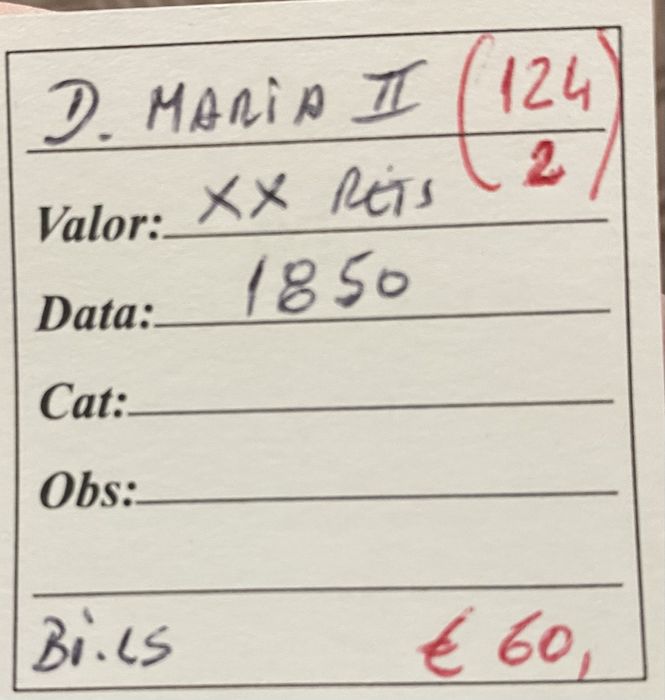 D. MARIA II (124
2)
Valor: XX REIS
Data: 1850
Cat:
Obs:
€ 60,